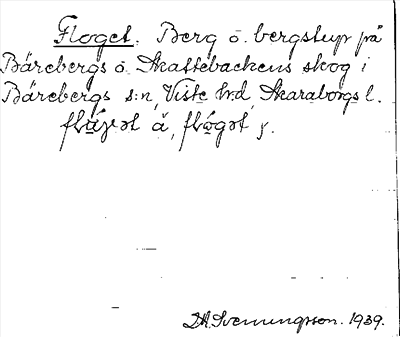 Floget. Berg o. bergstup på
Bärebergs o. Skattebackens skog i
Bärebergs s:n, Viste hrd, Skaraborgs l.
flåget ä, flóget y.
D.A. Svenningsson. 1939.